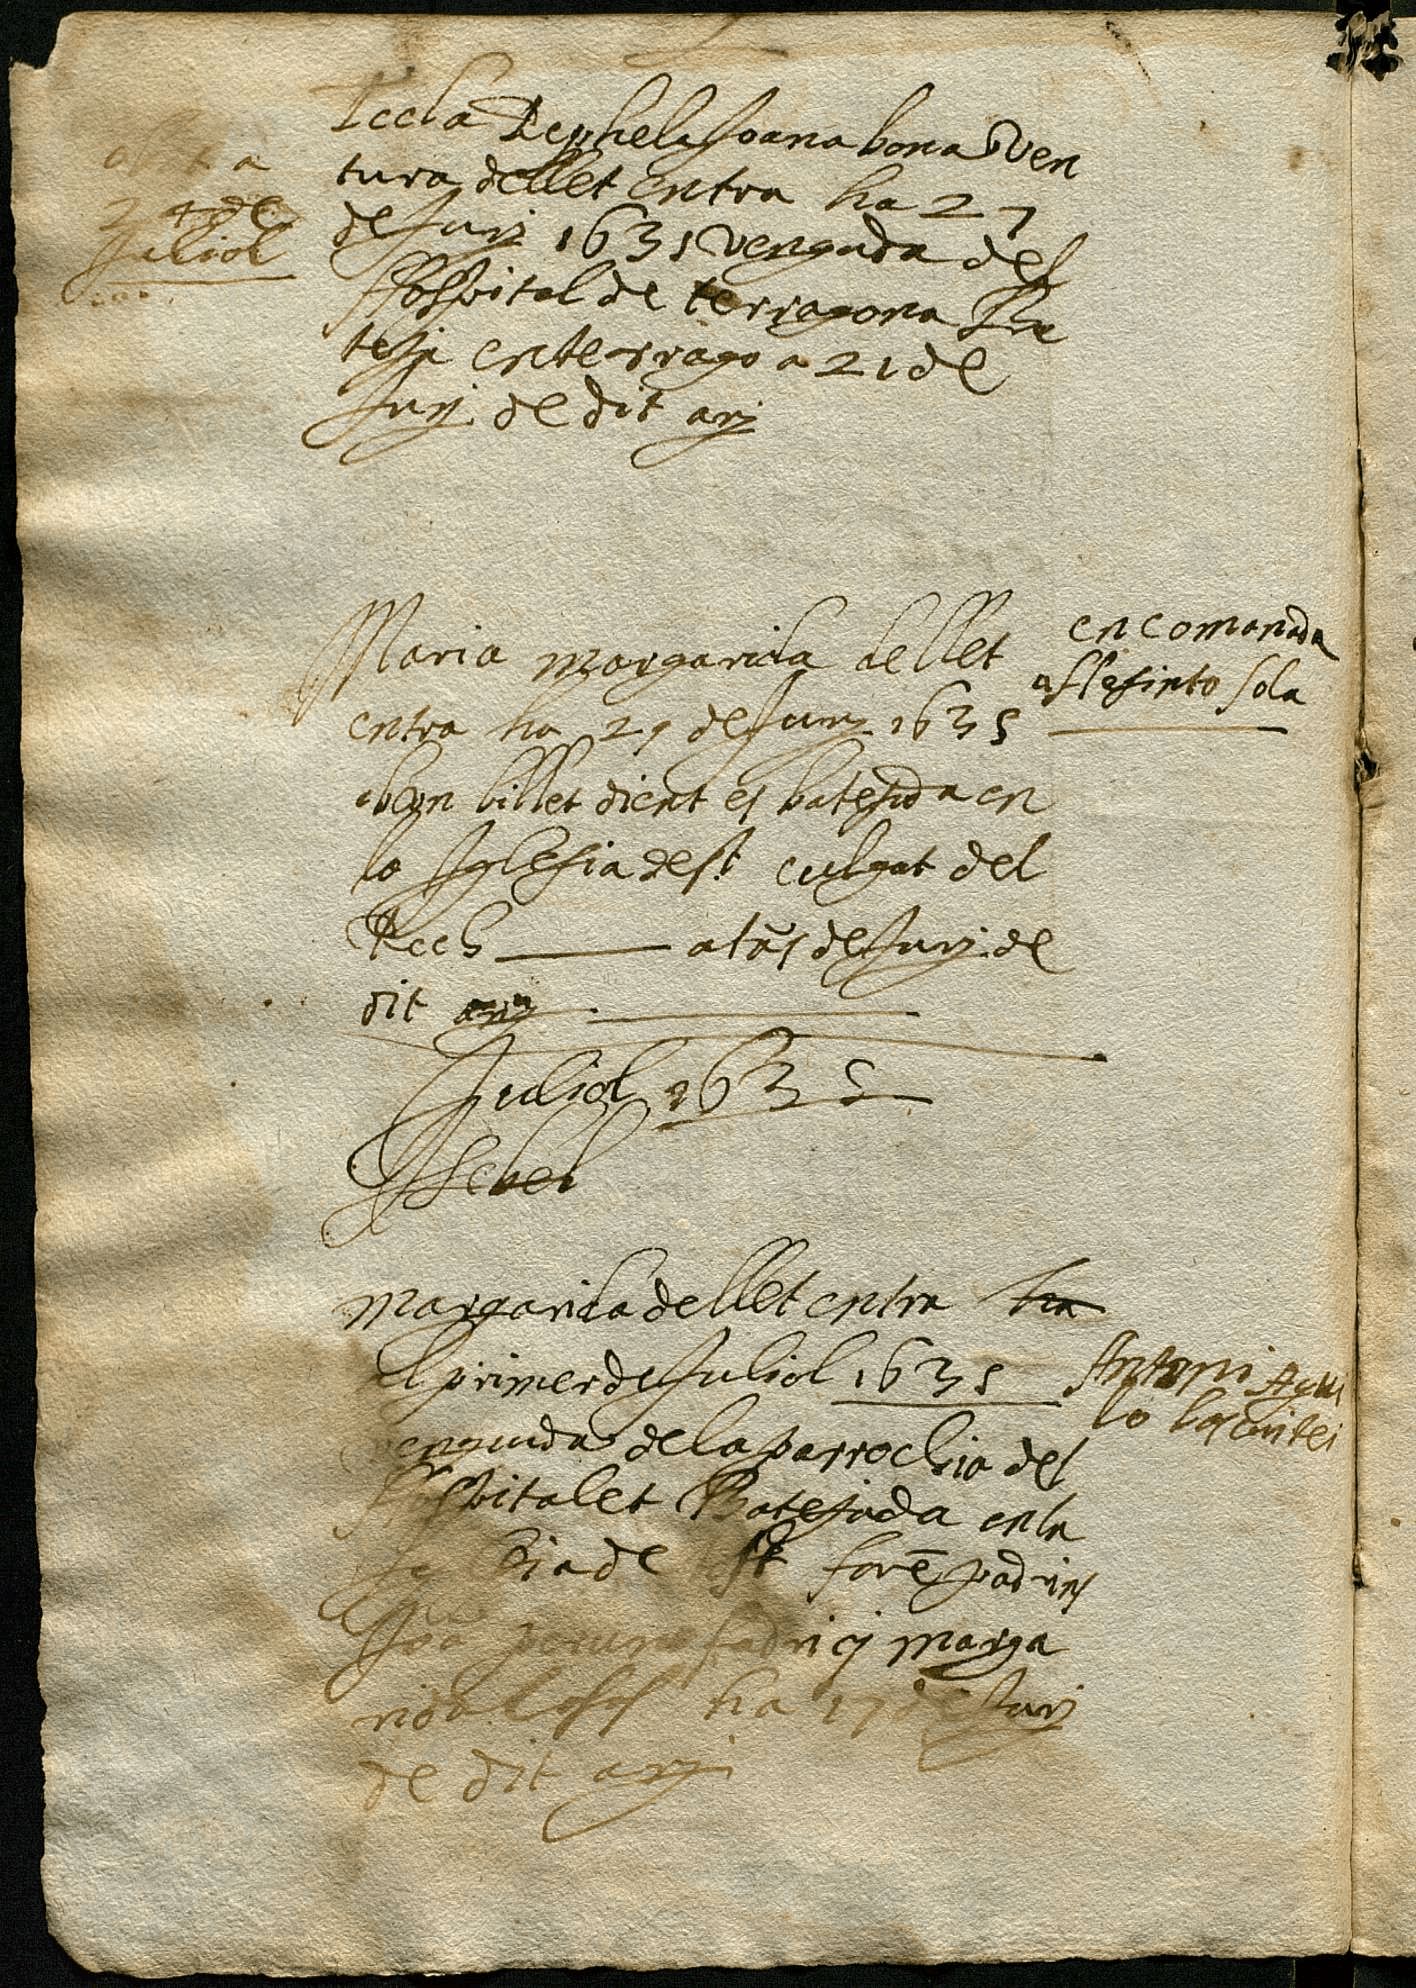 Tecla Raphela Joana bona Ven
tura de llet entra ha 27
de Juny 1635 venguda del
Hospital de terragona Ba
tejà en terrago a 21 de
Juny de dit any
2 4 de
Juliol
Maria margarida de llet
entra ha 29 de Juny 1635
ab un billet dient es batejada en
la Iglesia de st culgat del
Rech a de Juny de
dit any
en comanada
a sola
Juliol 1635
margarida de llet entra ha
el primer de Juliol 1635
venguda de la parrochia del
Hospitalet Batejada en la
de forē padrins
fadri y marga
rida ha 17 de Juny
de dit any
Antoni
lo